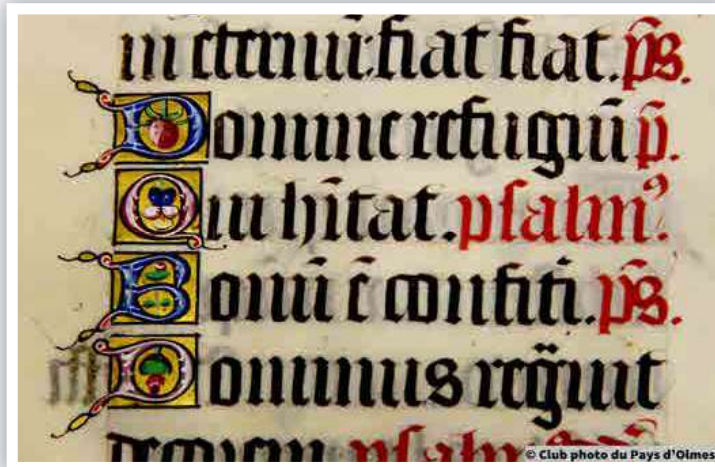 in eternū: fiat fiat. p̄s.
Domine refugiū p̄.
Qui hītat. psalmꝰ.
Bonū ē confiti. p̄s.
Dominus reg̃uit
decorem psalm
© Club photo du Pays d'Olmes